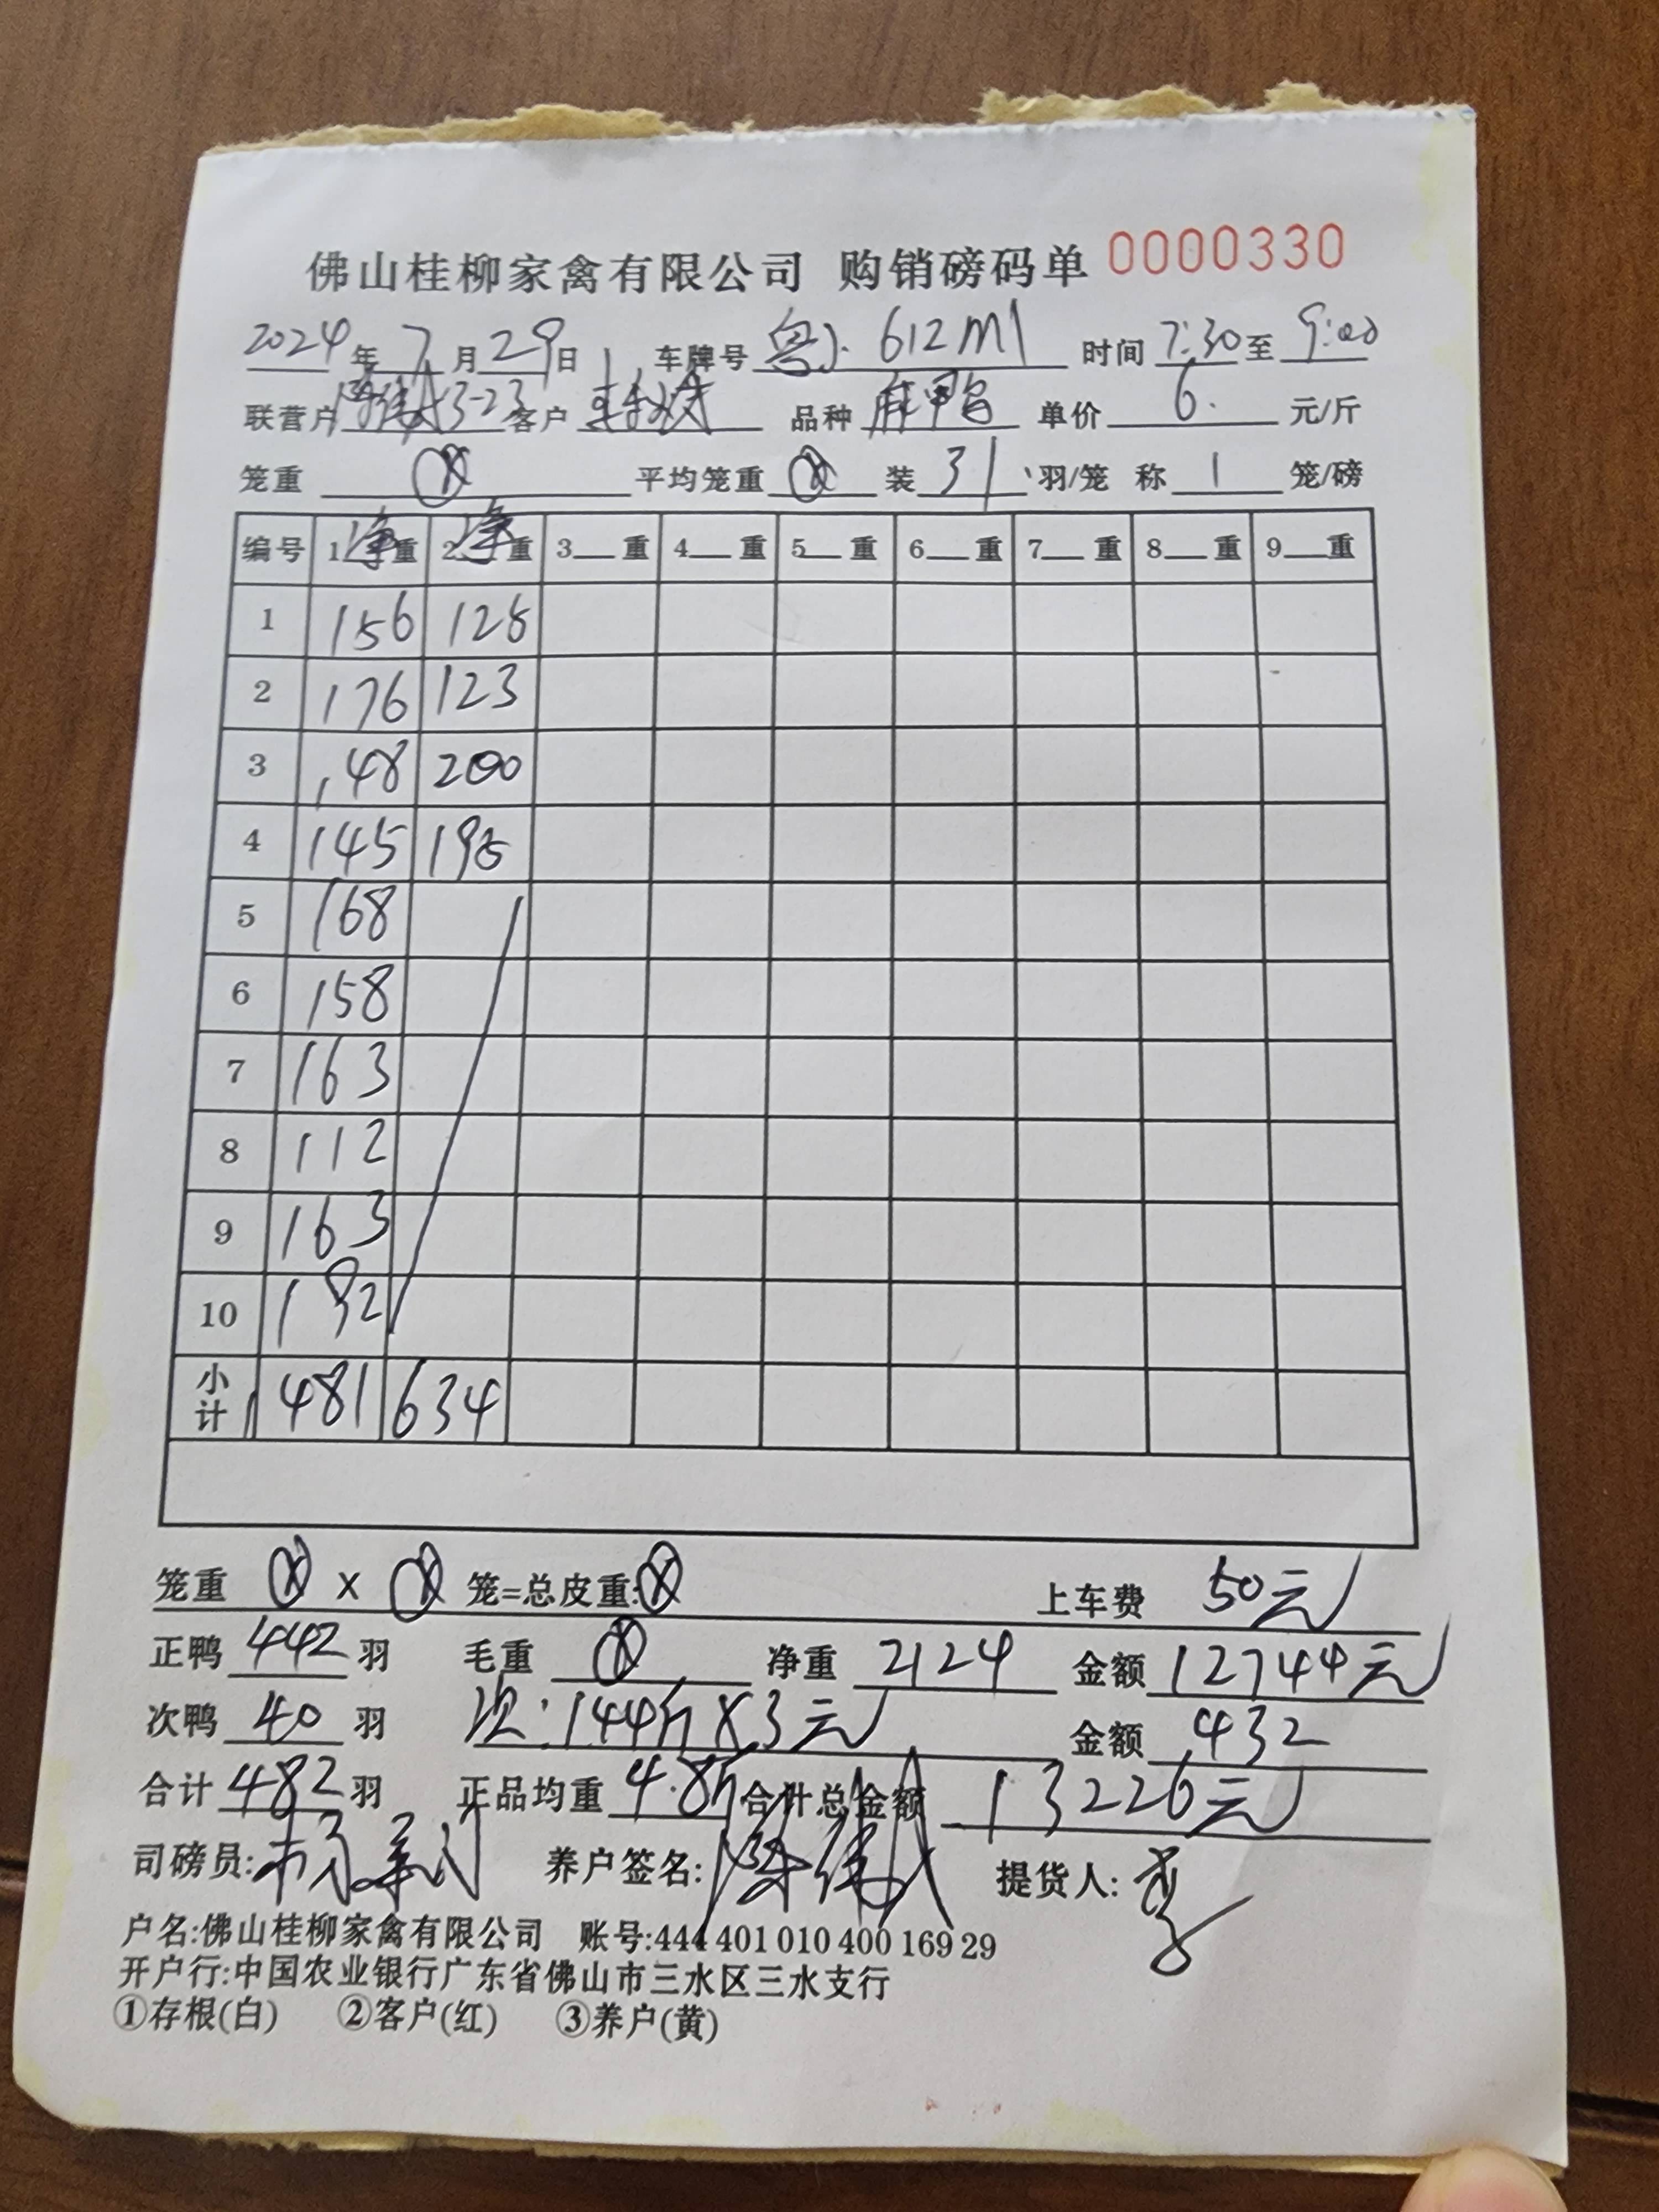 佛山桂柳家禽有限公司 购销磅码单 0000330
2024年7月29日 车牌号 粤J·612M1 时间 7:30至9:00
联营户 3-23 客户 品种 麻鸭 单价 6. 元/斤
笼重 平均笼重 装 31 羽/笼 称 1 笼/磅
编号 1净重 2净重 3__重 4__重 5__重 6__重 7__重 8__重 9__重
1 156 128
2 176 123
3 148 200
4 145
5 168
6 158
7 163
8 112
9 163
10 192
小计 1481 634
笼重 X 笼=总皮重: 上车费 50元
正鸭 442 羽 毛重 净重 2124 金额 12744元
次鸭 40 羽 次:144斤X3元 金额 432
合计 482 羽 正品均重 4.8斤 合计总金额 13226元
司磅员: 养户签名: 提货人:
户名:佛山桂柳家禽有限公司 账号:444 401 010 400 169 29
开户行:中国农业银行广东省佛山市三水区三水支行
①存根(白) ②客户(红) ③养户(黄)